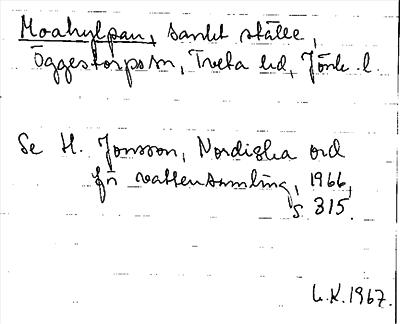 Moahylpan, sankt ställe,
Öggestorps sn, Tveta hd, Jönk. l.
Se H. Jonsson, Nordiska ord
för vattensamling, 1966,
s. 315.
L.K. 1967.